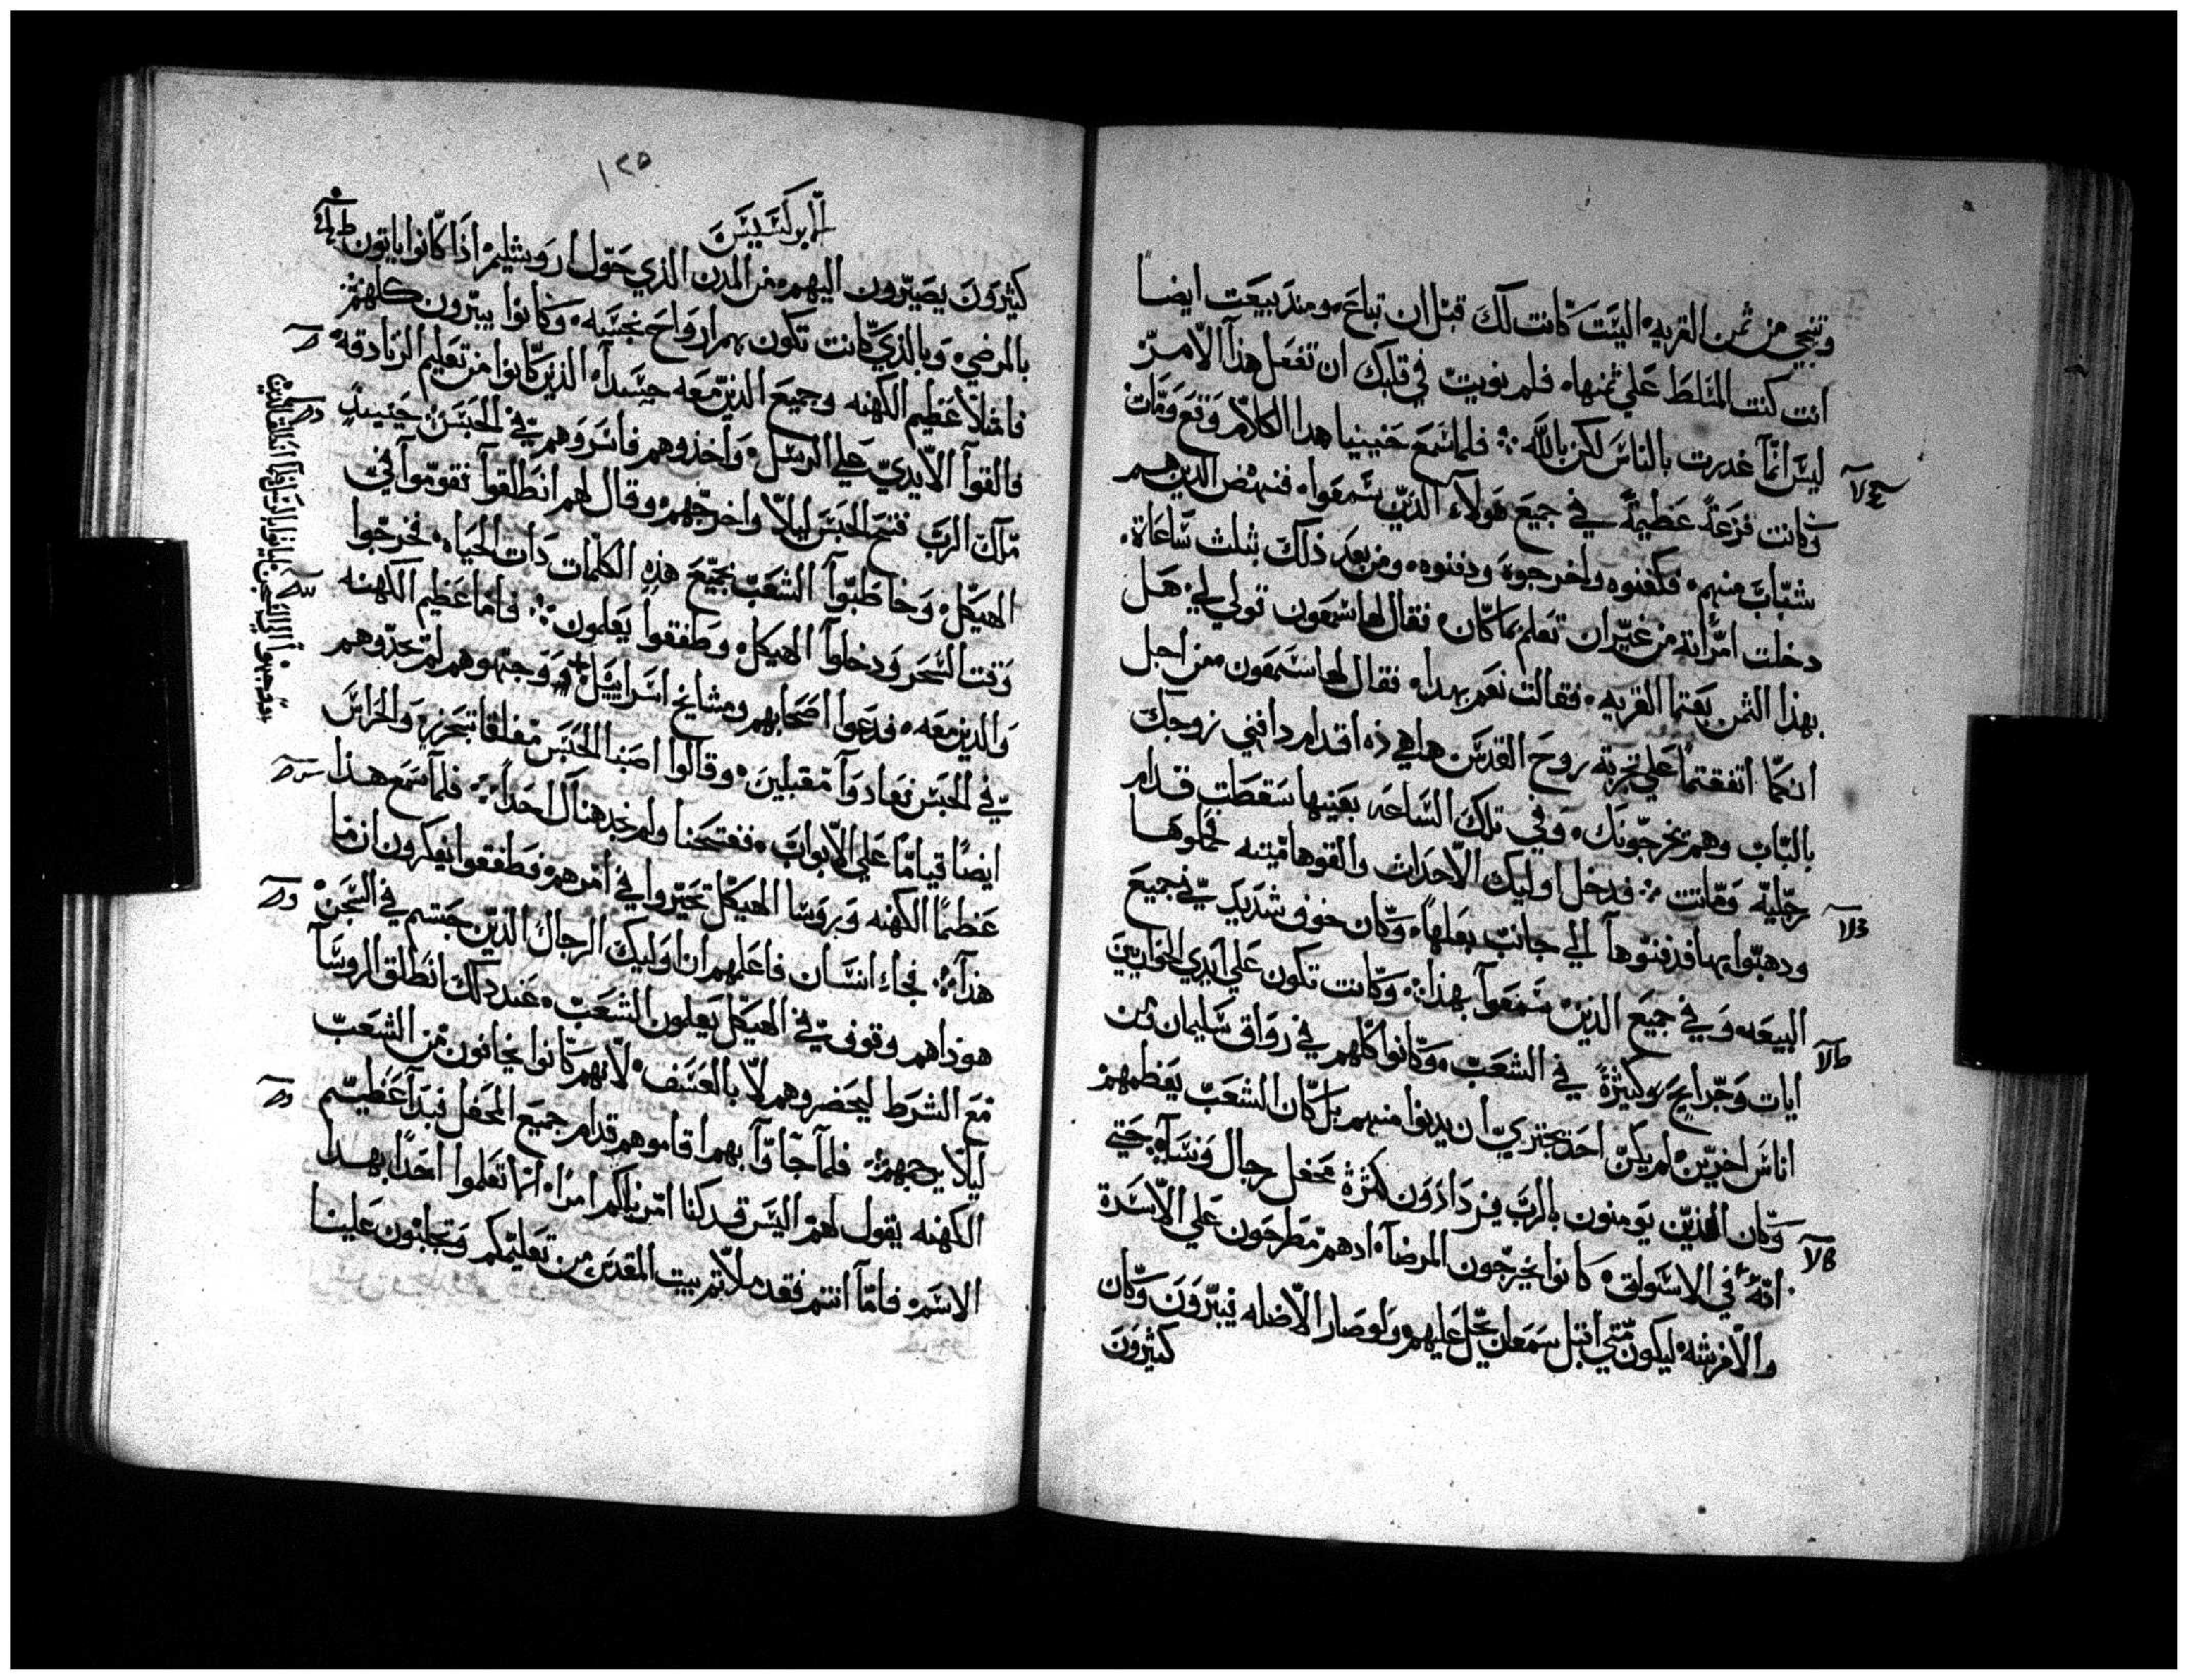 وتخبي من ثمن القريه اليست كانت لك قبل ان تباع ومند بيعت ايضاً
انت كنت المتلط على ثمنها فلم نويت في قلبك ان تفعل هذا الامر
ليس انما غدرت بالناس لكن بالله فلما سمع حنينيا هدا الكلام وقع ومات
وكانت فزعة عظيمة في جميع هولاء الذين سمعوا فنهض الدين هم
شباب منهم فكفنوه واخرجوه ودفنوه ومن بعد ذلك بثلث ساعاة
دخلت امرأته من غير ان تعلم بما كان فقال لها شمعون قولي لي هل
بهذا الثمن بعتما القريه فقالت نعم بهدا فقال لها شمعون من اجل
انكما اتفقتما على تجربة روح القدس ها هي ذه اقدام دافني زوجك
بالباب وهم يخرجونك وفي تلك الساعه بعينها سقطت قدام
رجليه وماتت فدخل اوليك الاحداث والقوها ميته فحملوها
ودهبوا بها فدفنوها الي جانب بعلها وكان خوف شديد في جميع
البيعه وفي جميع الذين سمعوا بهذا وكانت تكون على ايدي الحواريين
ايات وجرايح كثيرة في الشعب وكانوا كلهم في رواق سليمان ومن
اناس اخرين لم يكن احد يجتري ان يدنوا منهم بل كان الشعب يعظمهم
وكان الذين يومنون بالرب يزدادون كثرة محفل رجال ونساء حتي
انه في الاسواق كانوا يخرجون المرضا اد هم مطرحون على الاسرة
والافرشه ليكون متي اقبل سمعان يحل عليهم ولو صار الاضله فيبرون وكان
كثيرون
١٢٥
الابركسيس
كثيرون يصيرون اليهم من المدن الذي حول اروشليم اذا كانوا ياتون
بالمرضي وبالذي كانت تكون بهم ارواح نجسه وكانوا يبرون كلهم
فامتلا عظيم الكهنه وجميع الذين معه حسدا الذين كانوا من تعليم الزنادقة
فالقوا الايدي على الرسل واخذوهم فاسروهم في الحبس حينيد
ملاك الرب فتح الحبس ليلا واخرجهم وقال لهم انطلقوا فقوموا في
الهيكل وخاطبوا الشعب بجميع هذه الكلمات دات الحياه فخرجوا
وقت السحر ودخلوا الهيكل وطفقوا يعلمون فاما عظيم الكهنه
والدين معه فدعوا اصحابهم ومشايخ اسراييل ووجهوهم لم يجدوهم
في الحبس فعادوا مقبلين وقالوا اصبنا الحبس مغلقا بتحرز والحراس
ايضا قياما على الابواب ففتحنا ولم نجد هناك احدا فلما سمع هذا
عظما الكهنه وبروسا الهيكل تحيروا في امرهم فطفقوا يفكرون ان ما
هذا فجاء انسان فاعلمهم ان اوليك الرجال الذين حبستم في السجن
هوذا هم وقوف في الهيكل يعلمون الشعب عند دلك انطلق الروسا
مع الشرط ليحضروهم لا بالعنف لانهم كانوا يخافون من الشعب
ليلا يرجمهم فلما جاوا بهم اقاموهم قدام جميع المحفل فبدا عظيم
الكهنه يقول لهم اليس قد كنا امرناكم امرا انما تعلموا احدا بهدا
الاسم فاما انتم فقد ملاتم بيت المقدس من تعليمكم وتجلبون علينا